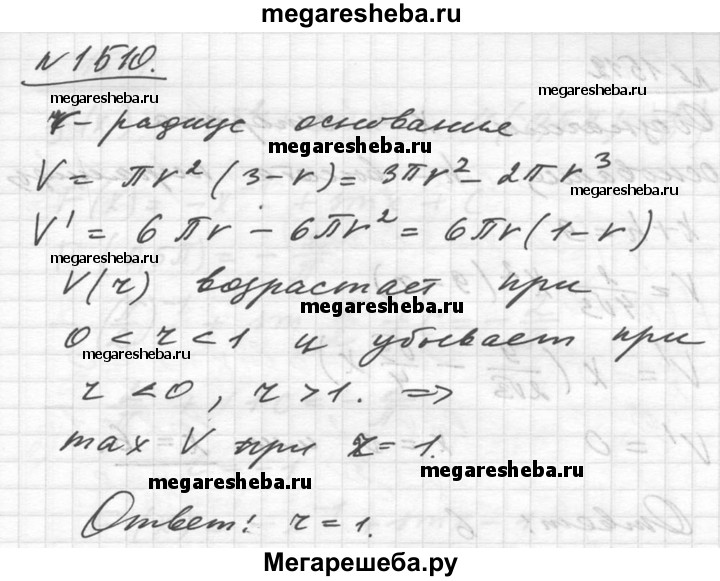 megaresheba.ru
№1510.
megaresheba.ru
megaresheba.ru
r - радиус основания
megaresheba.ru
V = πr²(3-r) = 3πr² - 2πr³
megaresheba.ru
V' = 6πr - 6πr² = 6πr(1-r)
V(r) возрастает при
megaresheba.ru
0 < r < 1 и убывает при
megaresheba.ru
r < 0, r > 1. ⇒
max V при r = 1.
megaresheba.ru
megaresheba.ru
Ответ: r = 1.
Мегарешеба.ру